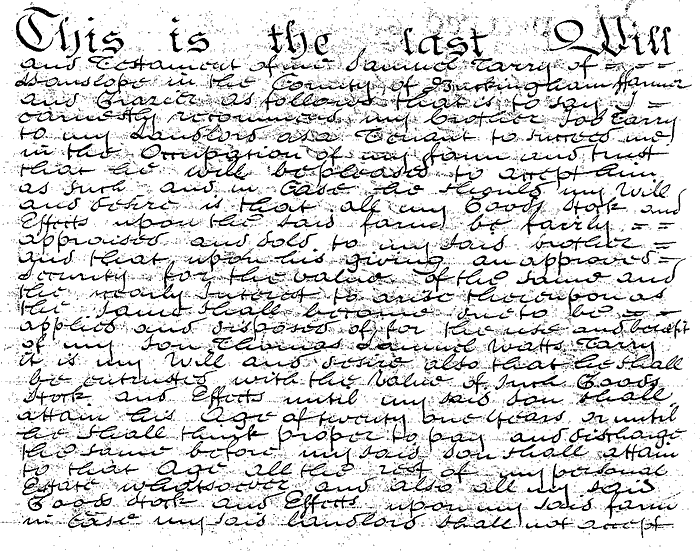 This is the last Will
and Testament of me Samuel Tarry of = = =
Hanslope in the County of Buckingham Farmer
and Grazier as follows that is to say I =
earnestly recommend my brother Job Tarry
to my Landlord as a Tenant to succeed me
in the Occupation of my farm and trust
that he will be pleased to accept him
as such and in Case he should my Will
and desire is that all my Goods Stock and
Effects upon the said farm be fairly = =
appraised and sold to my said brother =
and that upon his giving an approved =
Security for the value of the same and
the yearly Interest to arise thereupon as
the same shall become due to be = =
applied and disposed of for the use and benefit
of my son Thomas Samuel Watts Tarry
it is my Will and desire also that he shall
be entrusted with the Value of such Goods
Stock and Effects until my said son shall
attain his Age of twenty one Years or until
he shall think proper to pay and discharge
the same before my said son shall attain
to that Age all the rest of my personal
Estate whatsoever and also all my said
Goods Stock and Effects upon my said farm
in Case my said Landlord shall not accept